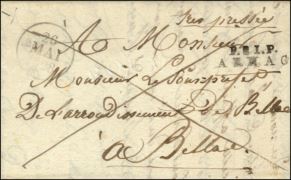 Tres pressée
26
MAI
A Monsieur
P.R.I.P.
ARMAG
Monsieur Le Sousprefet
De L'arrondissement de Bellac
à Bellac